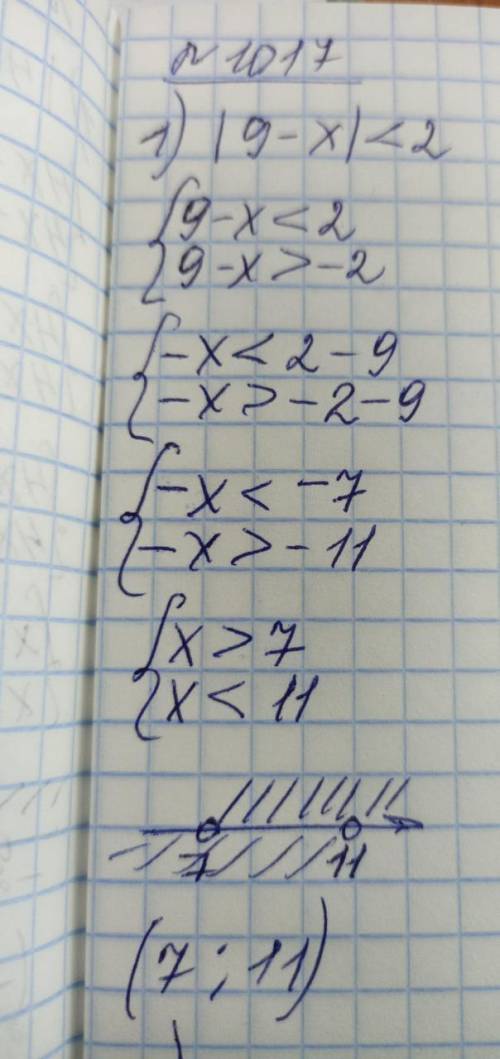 №1017
1) |9-x|<2
{9-x<2
{9-x>-2
{-x<2-9
{-x>-2-9
{-x<-7
{-x>-11
{x>7
{x<11
7 11
(7;11)